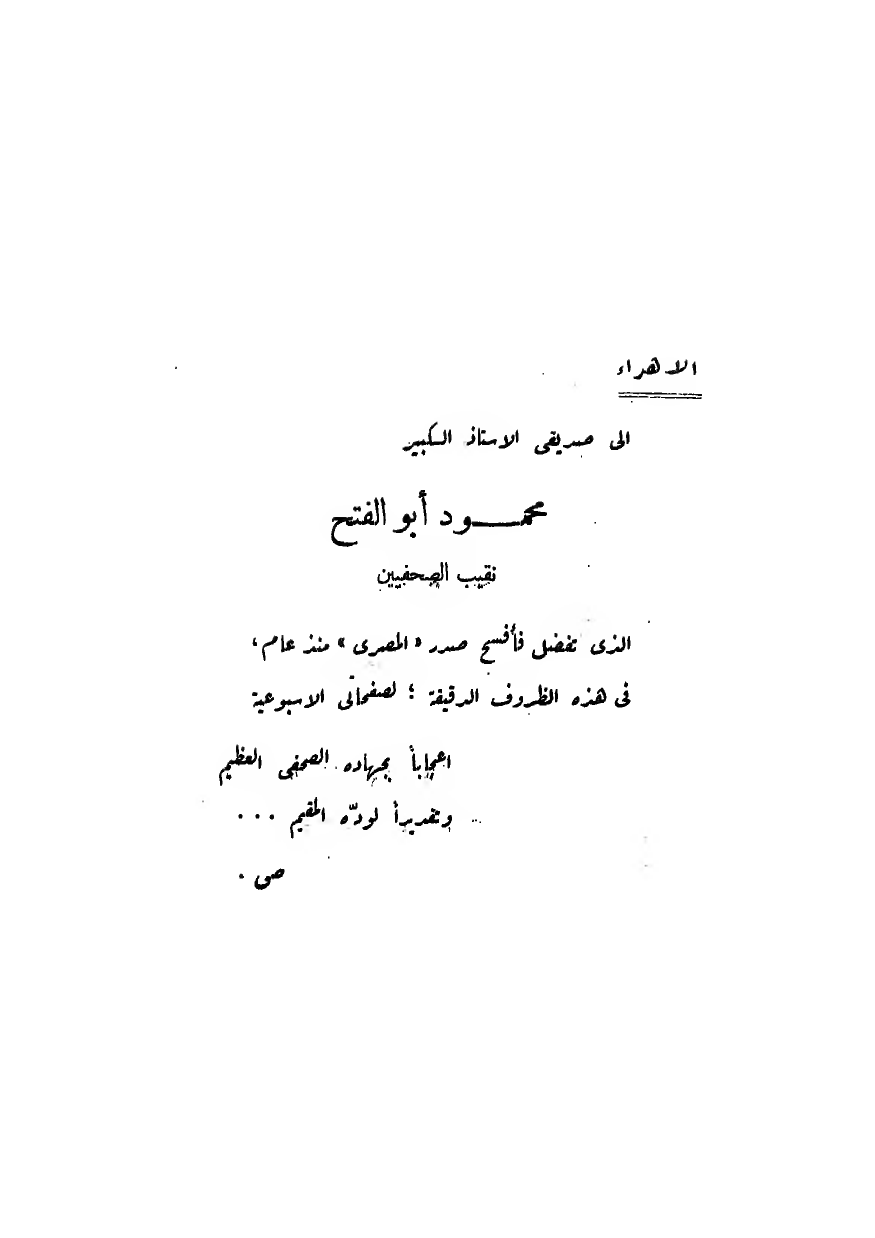 الاهداء
الى صديقى الاستاذ الكبير
محمود أبو الفتح
نقيب الصحفيين
الذى تفضل فأفسح صدر «المصرى» منذ عام،
فى هذه الظروف الدقيقة ؛ لصفحاتى الاسبوعية
اعجاباً بجهاده الصحفى العظيم
وتقديراً لودّه المقيم ...
ص .